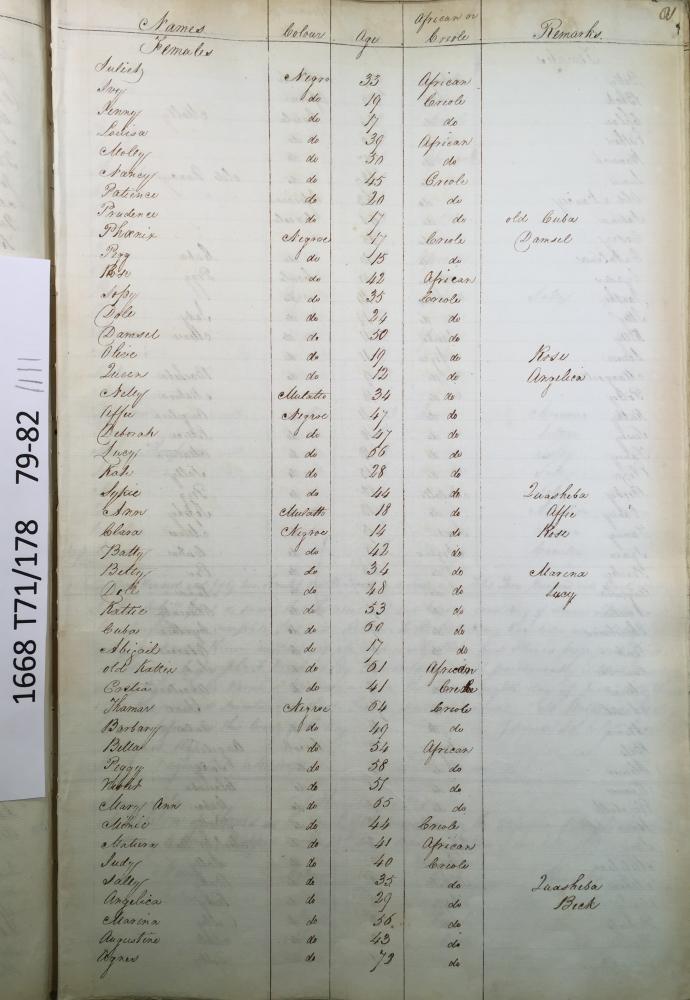 Names Colour Age African or Creole Remarks
Females
Juliet Negro 33 African
Ivy do 19 Creole
Penny do 17 do
Louisa do 39 African
Moley do 50 do
Nancy do 45 Creole
Patience do 20 do
Prudence do 17 do old Cuba
Phoenix Negroe 17 Creole Damsel
Peg do 15 do
Rose do 42 African
Sopy do 35 Creole
Dole do 24 do
Damsel do 50 do
Olive do 19 do Rose
Queen do 12 do Angelica
Nelly Mulatto 34 do
Effie Negroe 47 do
Deborah do 47 do
Lucy do 66 do
Kate do 28 do
Sykie do 44 do Quasheba
Ann Mulatto 18 do Affie
Clara Negroe 14 do Rose
Batty do 42 do
Betty do 34 do Marina
Doll do 48 do Lucy
Kattie do 53 do
Cuba do 60 do
Abigail do 17 do
old Kattie do 61 African
Castia do 41 Creole
Thamar Negroe 64 Creole
Barbary do 49 do
Bella do 54 African
Peggy do 58 do
Violet do 51 do
Mary Ann do 65 do
Mimie do 44 Creole
Matura do 41 African
Judy do 40 Creole
Sally do 35 do Quasheba
Angelica do 29 do Beck
Marina do 56 do
Augustine do 43 do
Agnes do 79 do
1668 T71/178 79-82